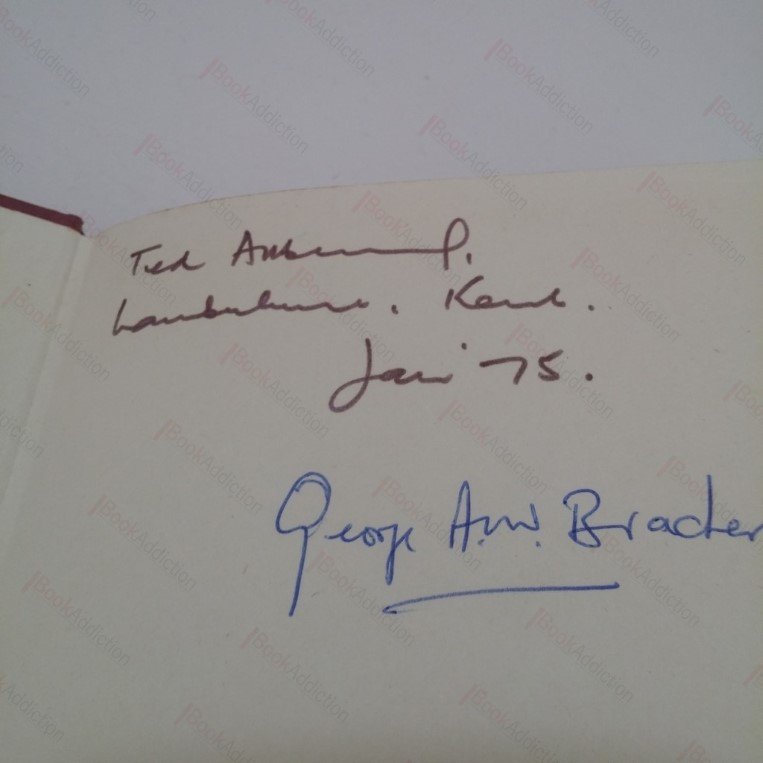 Ted
Lamberhurst. Kent.
Jan '75.
George A.W. Bracher
BookAddiction